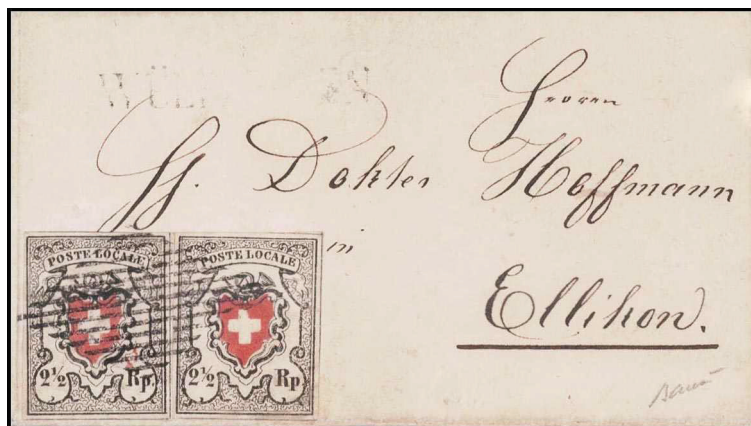 Herren
Dokter Hoffmann
in
Ellikon.
POSTE LOCALE
2½ Rp.
POSTE LOCALE
2½ Rp.